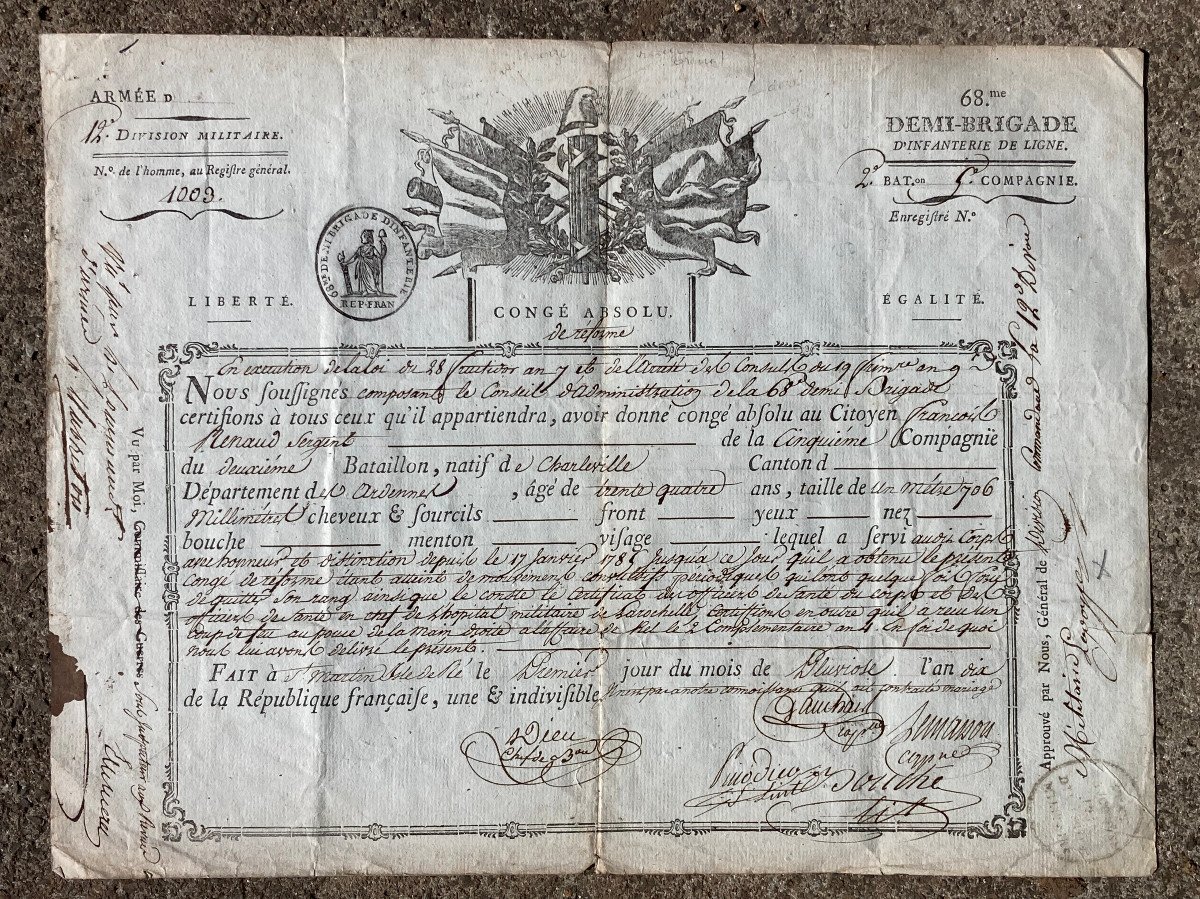 ARMÉE D
12e. DIVISION MILITAIRE.
N.o de l'homme, au Registre général.
1003.
68.me
DEMI-BRIGADE
D'INFANTERIE DE LIGNE.
2e BAT.on 5e. COMPAGNIE.
Enregistré N.o
68me DEMI BRIGADE D'INFANTERIE
REP. FRAN
LIBERTÉ.
CONGÉ ABSOLU.
de réforme
ÉGALITÉ.
En execution de la loi du 28 fructidor an 7 et de l'arreté des Consuls du 19 frimre an 9
Nous soussignés composant le Conseil d'administration de la 68e demi Brigade
certifions à tous ceux qu'il appartiendra, avoir donné congé absolu au Citoyen francois
Renaud Sergent de la Cinquiéme Compagnie
du deuxiéme Bataillon, natif de Charleville Canton d
Département des Ardennes, âgé de trente quatre ans, taille de un métre 706
Millimétres cheveux & sourcils front yeux nez
bouche menton visage lequel a servi audit Corps
avec honneur et distinction depuis le 17 Janvier 1786 Jusqua ce Jour quil a obtenu le présent
Congé de réforme etant atteint de mouvements convulsifs périodiques qui l'ont quelque fois
de quitter son rang ainsi que le conste le Certificat des officiers de santé du corps et des
officiers de santé en chef de l'hopital militaire de Larochelle Certifions en outre qu'il a recu un
Coup de feu au pouce de la Main droite a l'affaire de Kel le 2 Complementaire an 4 En foi de quoi
nous lui avons délivré le présent.
FAIT à St Martin Isle de Ré le Premier jour du mois de Pluviose l'an dix
de la République française, une & indivisible.
Dieu
Chef de
VU par Moi, Commissaire des Guerres
APPROUVÉ par Nous, Général de Division Commandant la 12e Divion
Militaire